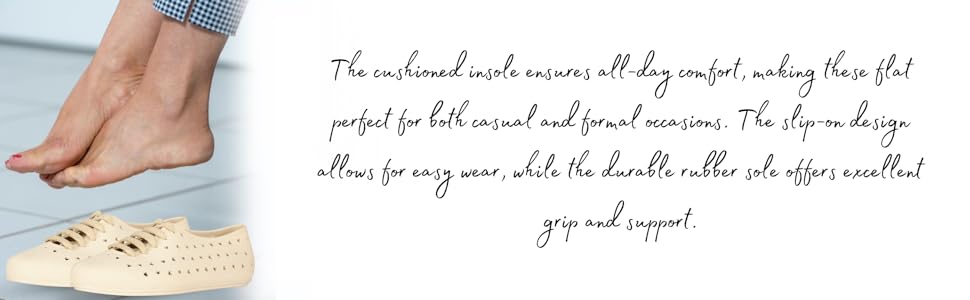 The cushioned insole ensures all-day comfort, making these flat
perfect for both casual and formal occasions. The slip-on design
allows for easy wear, while the durable rubber sole offers excellent
grip and support.